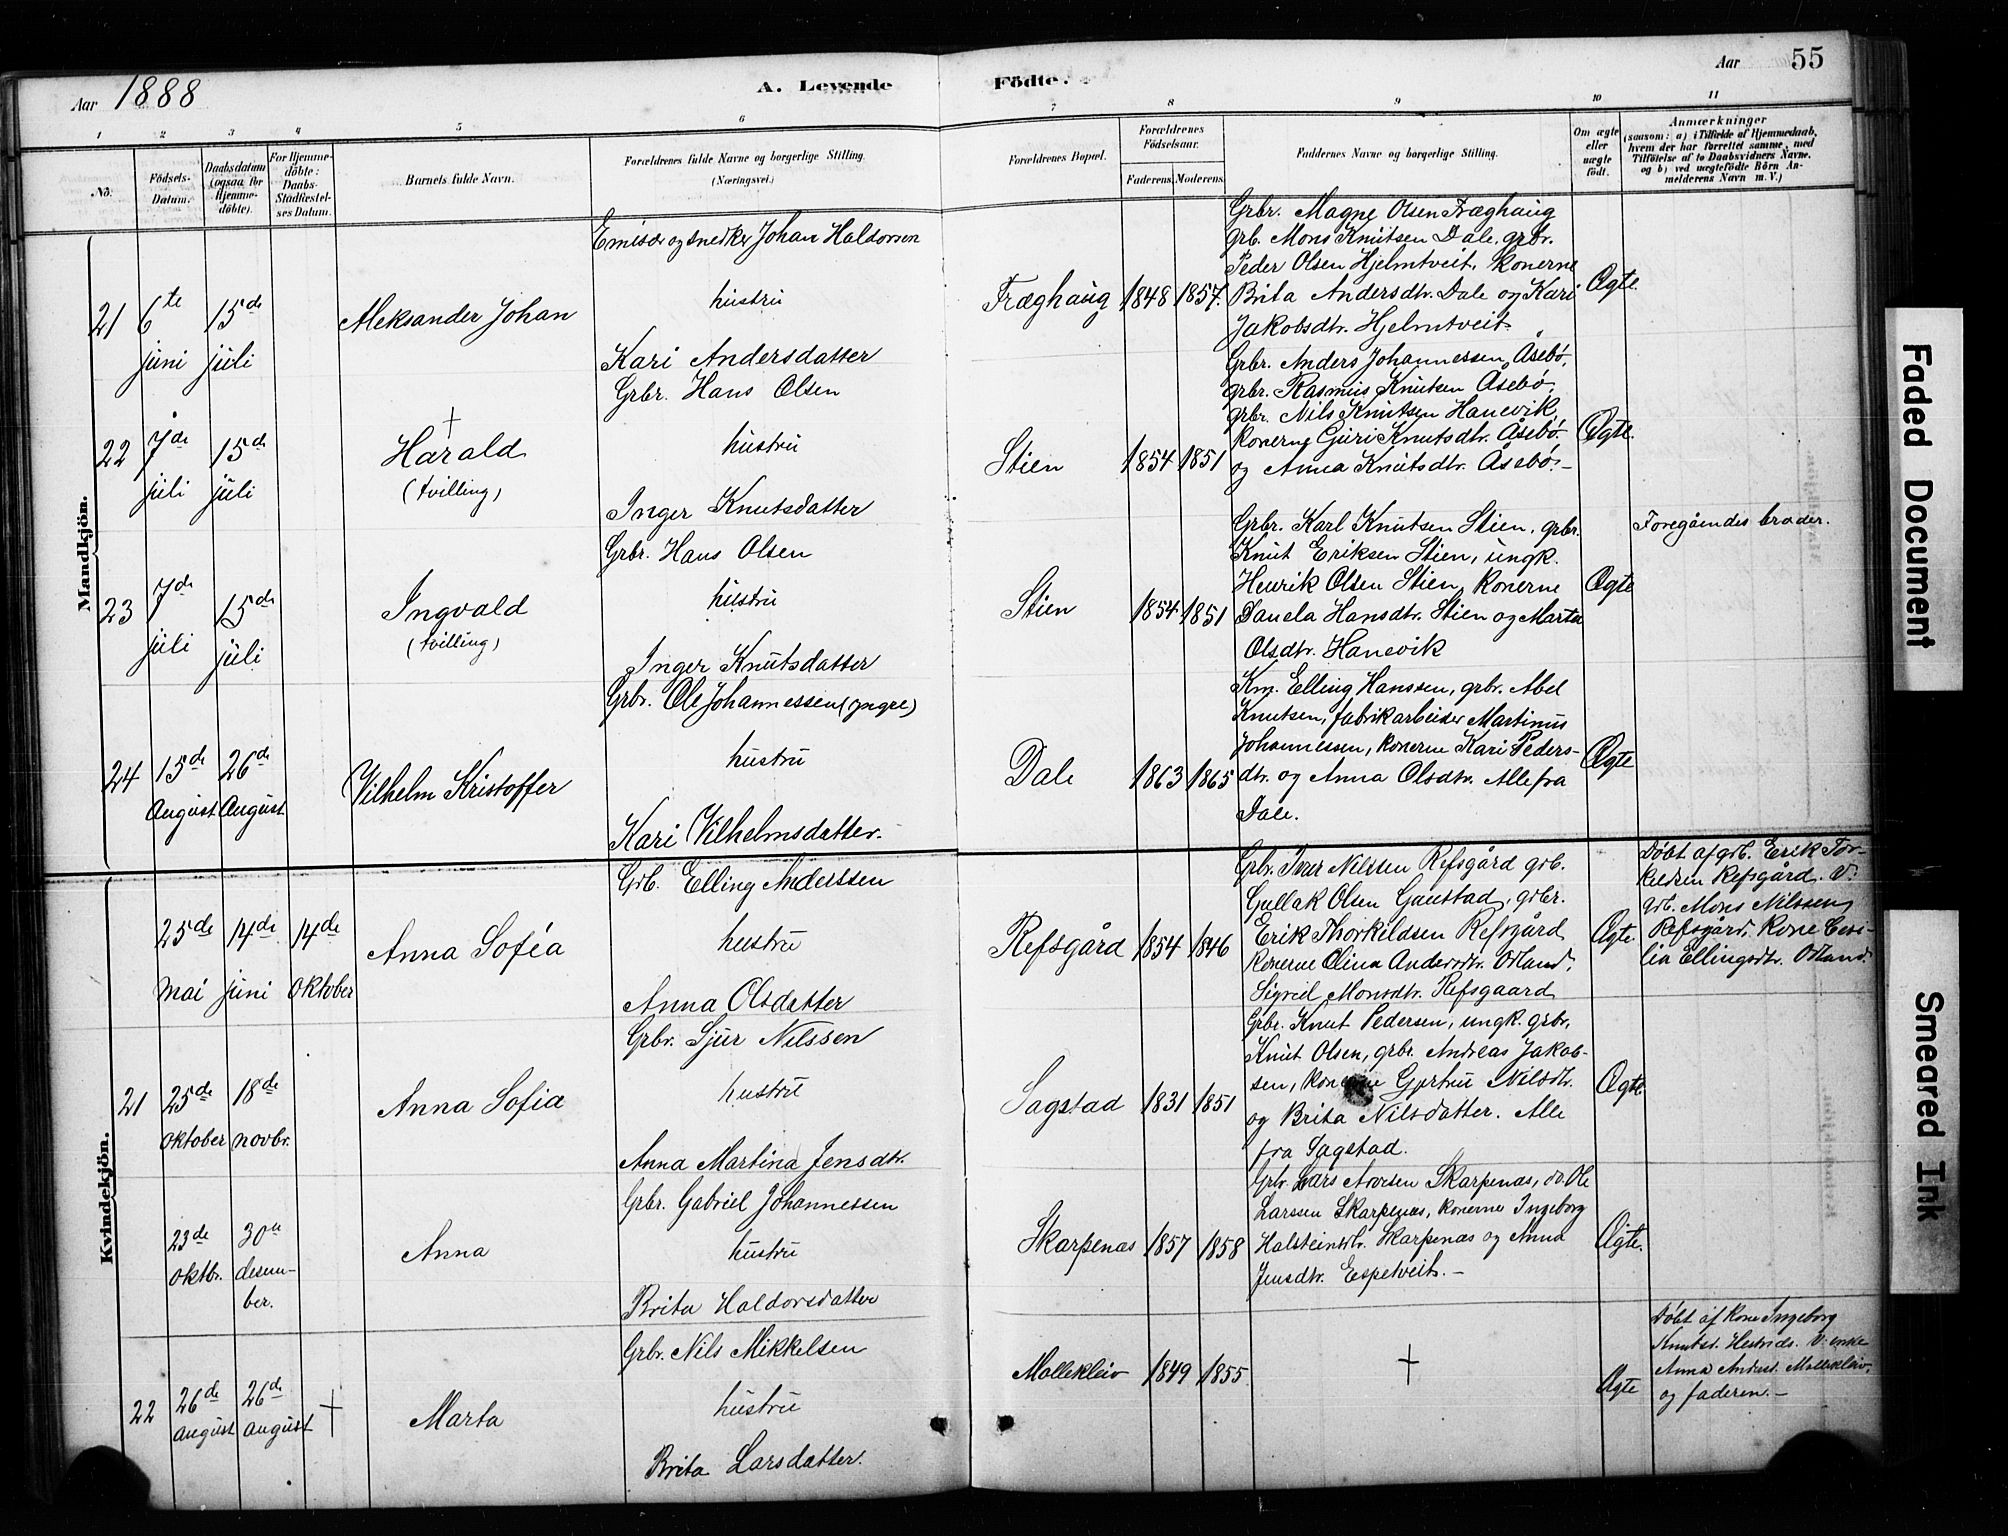 Aar 1888
A. Levende
Födte.
Aar
55
1 2 3 4 5 6 7 8 9 10 11
No.
Födsels-Datum.
Daabsdatum (ogsaa for Hjemme-döbte).
For Hjemme-döbte: Daabs-Stadfæstel-ses Datum.
Barnets fulde Navn.
Forældrenes fulde Navne og borgerlige Stilling.
(Næringsvei.)
Forældrenes Bopæl.
Forældrenes Födselsaar.
Faderens. Moderens.
Faddernes Navne og borgerlige Stilling.
Om ægte eller uægte født.
Anmærkninger
(saasom: a) i Tilfælde af Hjemmedaab,
hvem der har forrettet samme, med
Tilföielse af to Daabsvidners Navne,
og b) ved uægtefödte Börn An-
melderens Navn m. V.)
Mandkjön.
21 6te juni 15de juli
Aleksander Johan
Emisær og snedker Johan Haldorsen
hustru
Kari Andersdatter
Fræghaug 1848 1857.
Grbr. Magne Olsen Fræghaug
grb. Mons Knutsen Dale, grbr.
Peder Olsen Hjelmtveit, konerne
Brita Andersdtr. Dale og Kari
Jakobsdtr. Hjelmtveit.
Ægte.
22 7de juli 15de juli
†
Harald
(tvilling)
Grbr. Hans Olsen
hustru
Inger Knutsdatter
Stien 1854 1851
Grbr. Anders Johannessen Åsebø,
grbr. Rasmus Knutsen Åsebø,
grbr. Nils Knutsen Hanevik,
konerne Guri Knutsdtr. Åsebø
og Anna Knutsdtr. Åsebø.-
Ægte.
23 7de juli 15de juli
Ingvald
(tvilling)
Grbr. Hans Olsen
hustru
Inger Knutsdatter
Stien 1854 1851
Grbr. Karl Knutsen Stien, grbr.
Knut Eriksen Stien, ungk.
Henrik Olsen Stien, konerne
Danela Hansdtr. Stien og Marta
Olsdtr. Hanevik
Ægte
Foregåendes broder.
24 15de August 26de August
Vilhelm Kristoffer
Grbr. Ole Johannessen (yngre)
hustru
Kari Vilhelmsdatter.
Dale 1863 1865
Km. Elling Hanssen, grbr. Abel
Knutsen, fabrikarbeider Martinus
Johannessen, konerne Kari Peders-
dtr. og Anna Olsdtr. Alle fra
Dale.
Ægte
Kvindekjön.
25de mai 14de juni 14de oktober
Anna Sofia
Grb. Elling Anderssen
hustru
Anna Olsdatter
Refsgård 1854 1846
Grbr. Ivar Nilssen Refsgård grb.
Gullak Olsen Gaustad, grbr.
Erik Thorkildsen Refsgård
konerne Olina Andersdtr. Odland,
Sigrid Monsdtr. Refsgaard
Ægte
Døbt af grb. Erik Tor-
keldsen Refsgård. V.
grb. Mons Nilssen
Refsgård, kone Cesi-
lia Ellingsdtr. Odland.
21 25de oktober 18de novbr.
Anna Sofia
Grbr. Sjur Nilssen
hustru
Anna Martina Jensdtr.
Sagstad 1831 1851
Grbr. Knut Pedersen, ungk. grbr.
Knut Olsen, grbr. Andreas Jakob-
sen, konerne Gjertru Nilsdtr.
og Brita Nilsdatter. Alle
fra Sagstad.
Ægte.
23de oktbr. 30te desem-
ber.
Anna
Grbr. Gabriel Johannessen
hustru
Brita Haldorsdatter
Skarpenæs 1857 1858
Grbr. Lars Arnesen Skarpenæs, do. Ole
Larssen Skarpenæs, konerne Ingeborg
Halsteinsdtr. Skarpenæs og Anna
Jensdtr. Espetveit.-
Ægte.
22 26de august 26de august †
Marta
Grbr. Nils Mikkelsen
hustru
Brita Larsdatter.
Mollekleiv 1849 1855
†
Ægte
Døbt af kone Ingeborg
Knutsd. V. enke
Anna Andersd. Mollekleiv,
og faderen.-
Faded Document
Smeared Ink